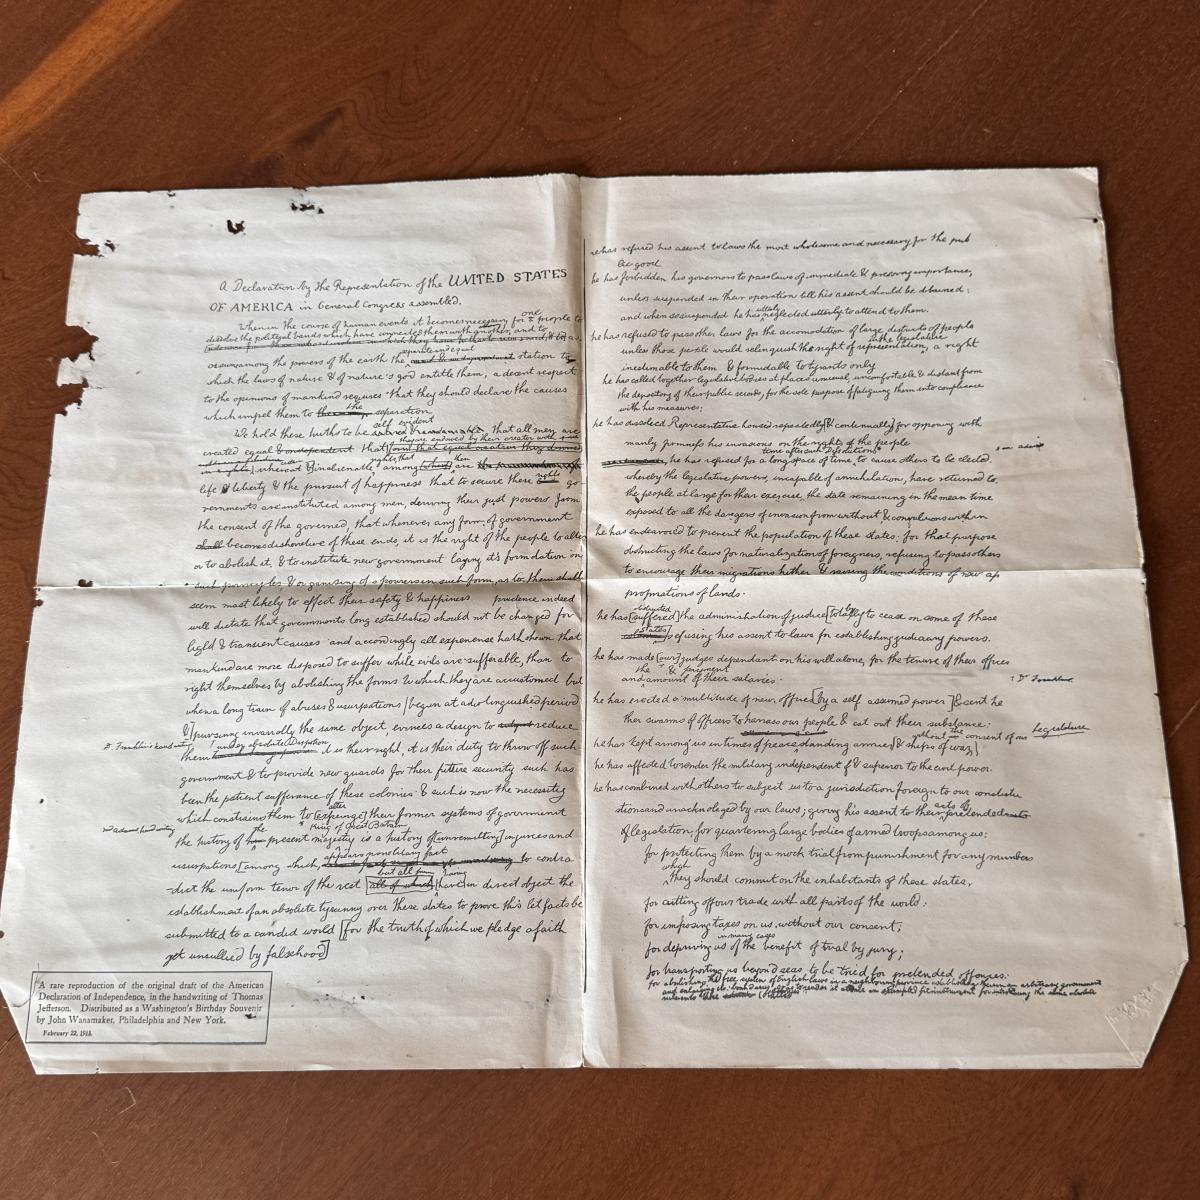 A Declaration by the Representation of the UNITED STATES
OF AMERICA in General Congress assembled.
When in the course of human events it becomes necessary for one people to
dissolve the political bands which have connected them with another, and to
assume among the powers of the earth the separate and equal station to
which the laws of nature & of nature's god entitle them, a decent respect
to the opinions of mankind requires that they should declare the causes
which impel them to the separation.
We hold these truths to be self evident that all men are
created equal that they are endowed by their creator with
inherent & inalienable rights, that among them are
life & liberty & the pursuit of happiness that to secure these rights go
vernments are instituted among men, deriving their just powers from
the consent of the governed, that whenever any form of government
shall becomes dishonstive of these ends, it is the right of the people to alter
or to abolish it, & to institute new government laying it's formdation on
such principles & organising it's powers in such form, as to them shall
seem most likely to effect their safety & happiness prudence indeed
will dictate that governments long established should not be changed for
light & transient causes and accordingly all experience hath shown that
mankind are more disposed to suffer while evils are sufferable, than to
right themselves by abolishing the forms to which they are accustomed but
when a long train of abuses & usurpations [begun at a distinguished period
&] pursuing invariably the same object, evinces a design to reduce
D. Franklin's handwriting
them under absolute Despotism it is their right, it is their duty to throw off such
government & to provide new guards for their future security such has
been the patient sufferance of these colonies & such is now the necessity
which constrains them to alter [expunge] their former systems of government
mr Adams handwriting
the history of the present King of Great Britain majesty is a history of [unremitting] injuries and
usurpations [among which, appears no solitary fact to contra
dict the uniform tenor of the rest but all have [all of which] [have] in direct object the
establishment of an absolute tyranny over these states to prove this let facts be
submitted to a candid world [for the truth of which we pledge a faith
yet unsullied by falsehood]
A rare reproduction of the original draft of the American
Declaration of Independence, in the handwriting of Thomas
Jefferson. Distributed as a Washington's Birthday Souvenir
by John Wanamaker, Philadelphia and New York.
February 22, 1918.
he has refused his assent to laws the most wholesome and necessary for the pub
lic good
he has forbidden his governors to pass laws of immediate & pressing importance,
unless suspended in their operation till his assent should be obtained:
and when so suspended he has neglected utterly to attend to them.
he has refused to pass other laws for the accomodation of large districts of people
unless those people would relinquish the right of representation in the legislature, a right
inestimable to them & formidable to tyrants only
he has called together legislative bodies at places unusual, uncomfortable & distant from
the depository of their public records, for the sole purpose of fatiguing them into compliance
with his measures;
he has dissolved Representative houses repeatedly [& continually] for opposing with
manly firmness his invasions on the rights of the people
he has refused for a long space of time, time after such Dissolutions to cause others to be elected.
whereby the legislative powers, incapable of annihilation, have returned to
the people at large for their exercise, the state remaining in the mean time
exposed to all the dangers of invasion from without & convulsions within
he has endeavored to prevent the population of these states. for that purpose
obstructing the laws for naturalization of foreigners, refusing to pass others
to encourage their migrations hither & raising the conditions of new ap
propriations of lands.
he has [suffered] the administration of justice [totally to cease on some of these
states] refusing his assent to laws for establishing judiciary powers.
he has made [our] judges dependant on his will alone, for the tenure of their offices
and the & payment amount of their salaries.
Dr Franklin
he has erected a multitude of new offices [by a self assumed power] & sent he
ther swarms of officers to harrass our people & eat out their substance:
he has kept among us in times of peace, standing armies [& ships of war] without the consent of our Legislature
he has affected to render the military independent of & superior to the civil power.
he has combined with others to subject us to a jurisdiction foreign to our constitu
tions and unacknoleged by our laws; giving his assent to their acts of pretended
of legislation, for quartering large bodies of armed troops among us:
for protecting them by a mock trial from punishment for any murders
which they should commit on the inhabitants of these states,
for cutting off our trade with all parts of the world:
for imposing taxes on us, without our consent,
for depriving us in many cases of the benefit of trial by jury;
for transporting us beyond seas, to be tried for pretended offences:
for abolishing the free system of English laws in a neighbouring province establishing therein an arbitrary government
and enlarging its boundary so as to render it at once an example & fit instrument for introducing the same absolute